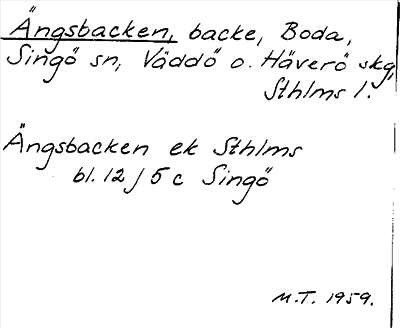 Ängsbacken, backe, Boda,
Singö sn, Väddö o. Häverö skg,
Sthlms l.
Ängsbacken ek Sthlms
bl. 12 J 5 c Singö
M.T. 1959.